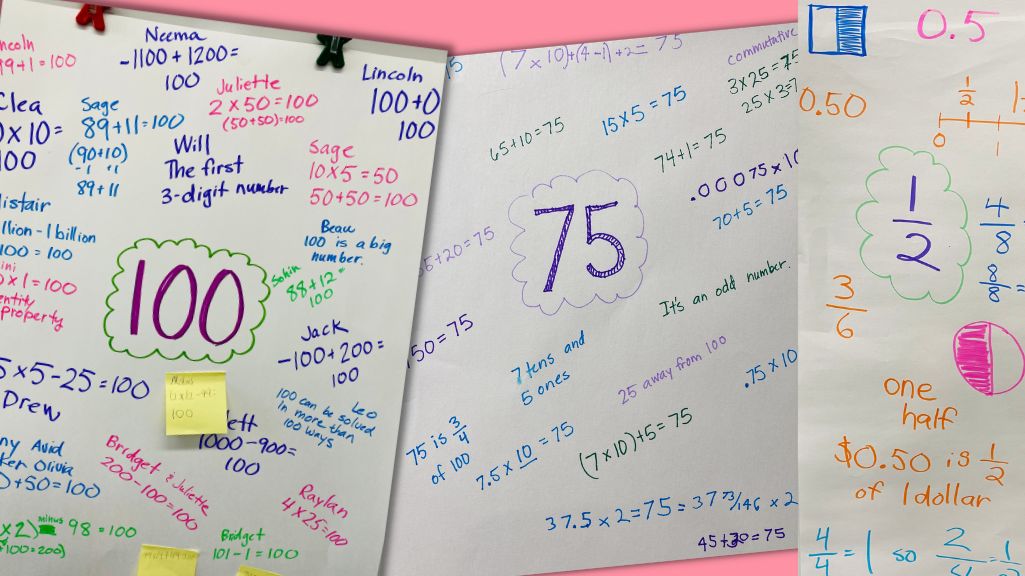 Neema
-1100 + 1200 =
100
ncoln
99+1=100
Lincoln
100+0
100
Juliette
2 x 50 = 100
(50+50)=100
Clea
0 x 10 =
100
Sage
89+11=100
(90+10)
-1 "1
89+11
Will
The first
3-digit number
Sage
10x5=50
50+50=100
listair
llion - 1 billion
100 = 100
Beau
100 is a big
number.
ini
0 x 1 = 100
entity
property
100
Sohin
88+12=
100
Jack
-100+200=
100
5x5-25=100
Drew
100
Leo
100 can be solved
in more than
100 ways
lett
1000-900=
100
ny Avid
ker Olivia
0+50=100
Bridget & Juliette
200-100=100
Raylan
4x25=100
x2) minus 98 = 100
$100=200)
Bridget
101-1=100
75
(7 x 10)+(4-1)+2= 75
commutative
3 x 25 = 75
25 x 3=7
65+10=75
15 x 5 = 75
74+1=75
.00075 x 10
70+5=75
55+20=75
75
It's an odd number.
150=75
7 tens and
5 ones
25 away from 100
.75 x 10
75 is 3/4
of 100
7.5 x 10 = 75
(7x10)+5=75
37.5 x 2=75=37 73/146 x 2
45+30=75
0.5
0.50
1/2
0
1
1/2
4/8
8/8 =
3/6
one
half
$0.50 is 1/2
of 1 dollar
4/4 = 1 so 2/4 = 1/2